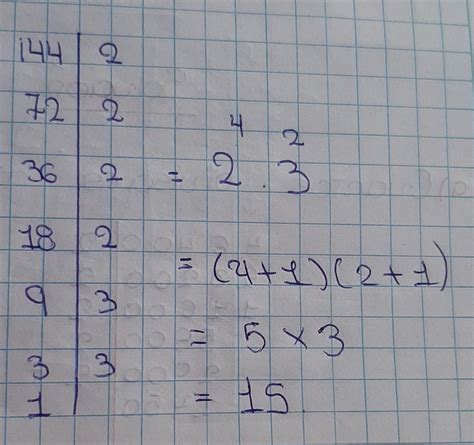 144 | 2
72 | 2
36 | 2 = 2⁴ . 3²
18 | 2
= (4+1)(2+1)
9 | 3
= 5 × 3
3 | 3
1 | = 15